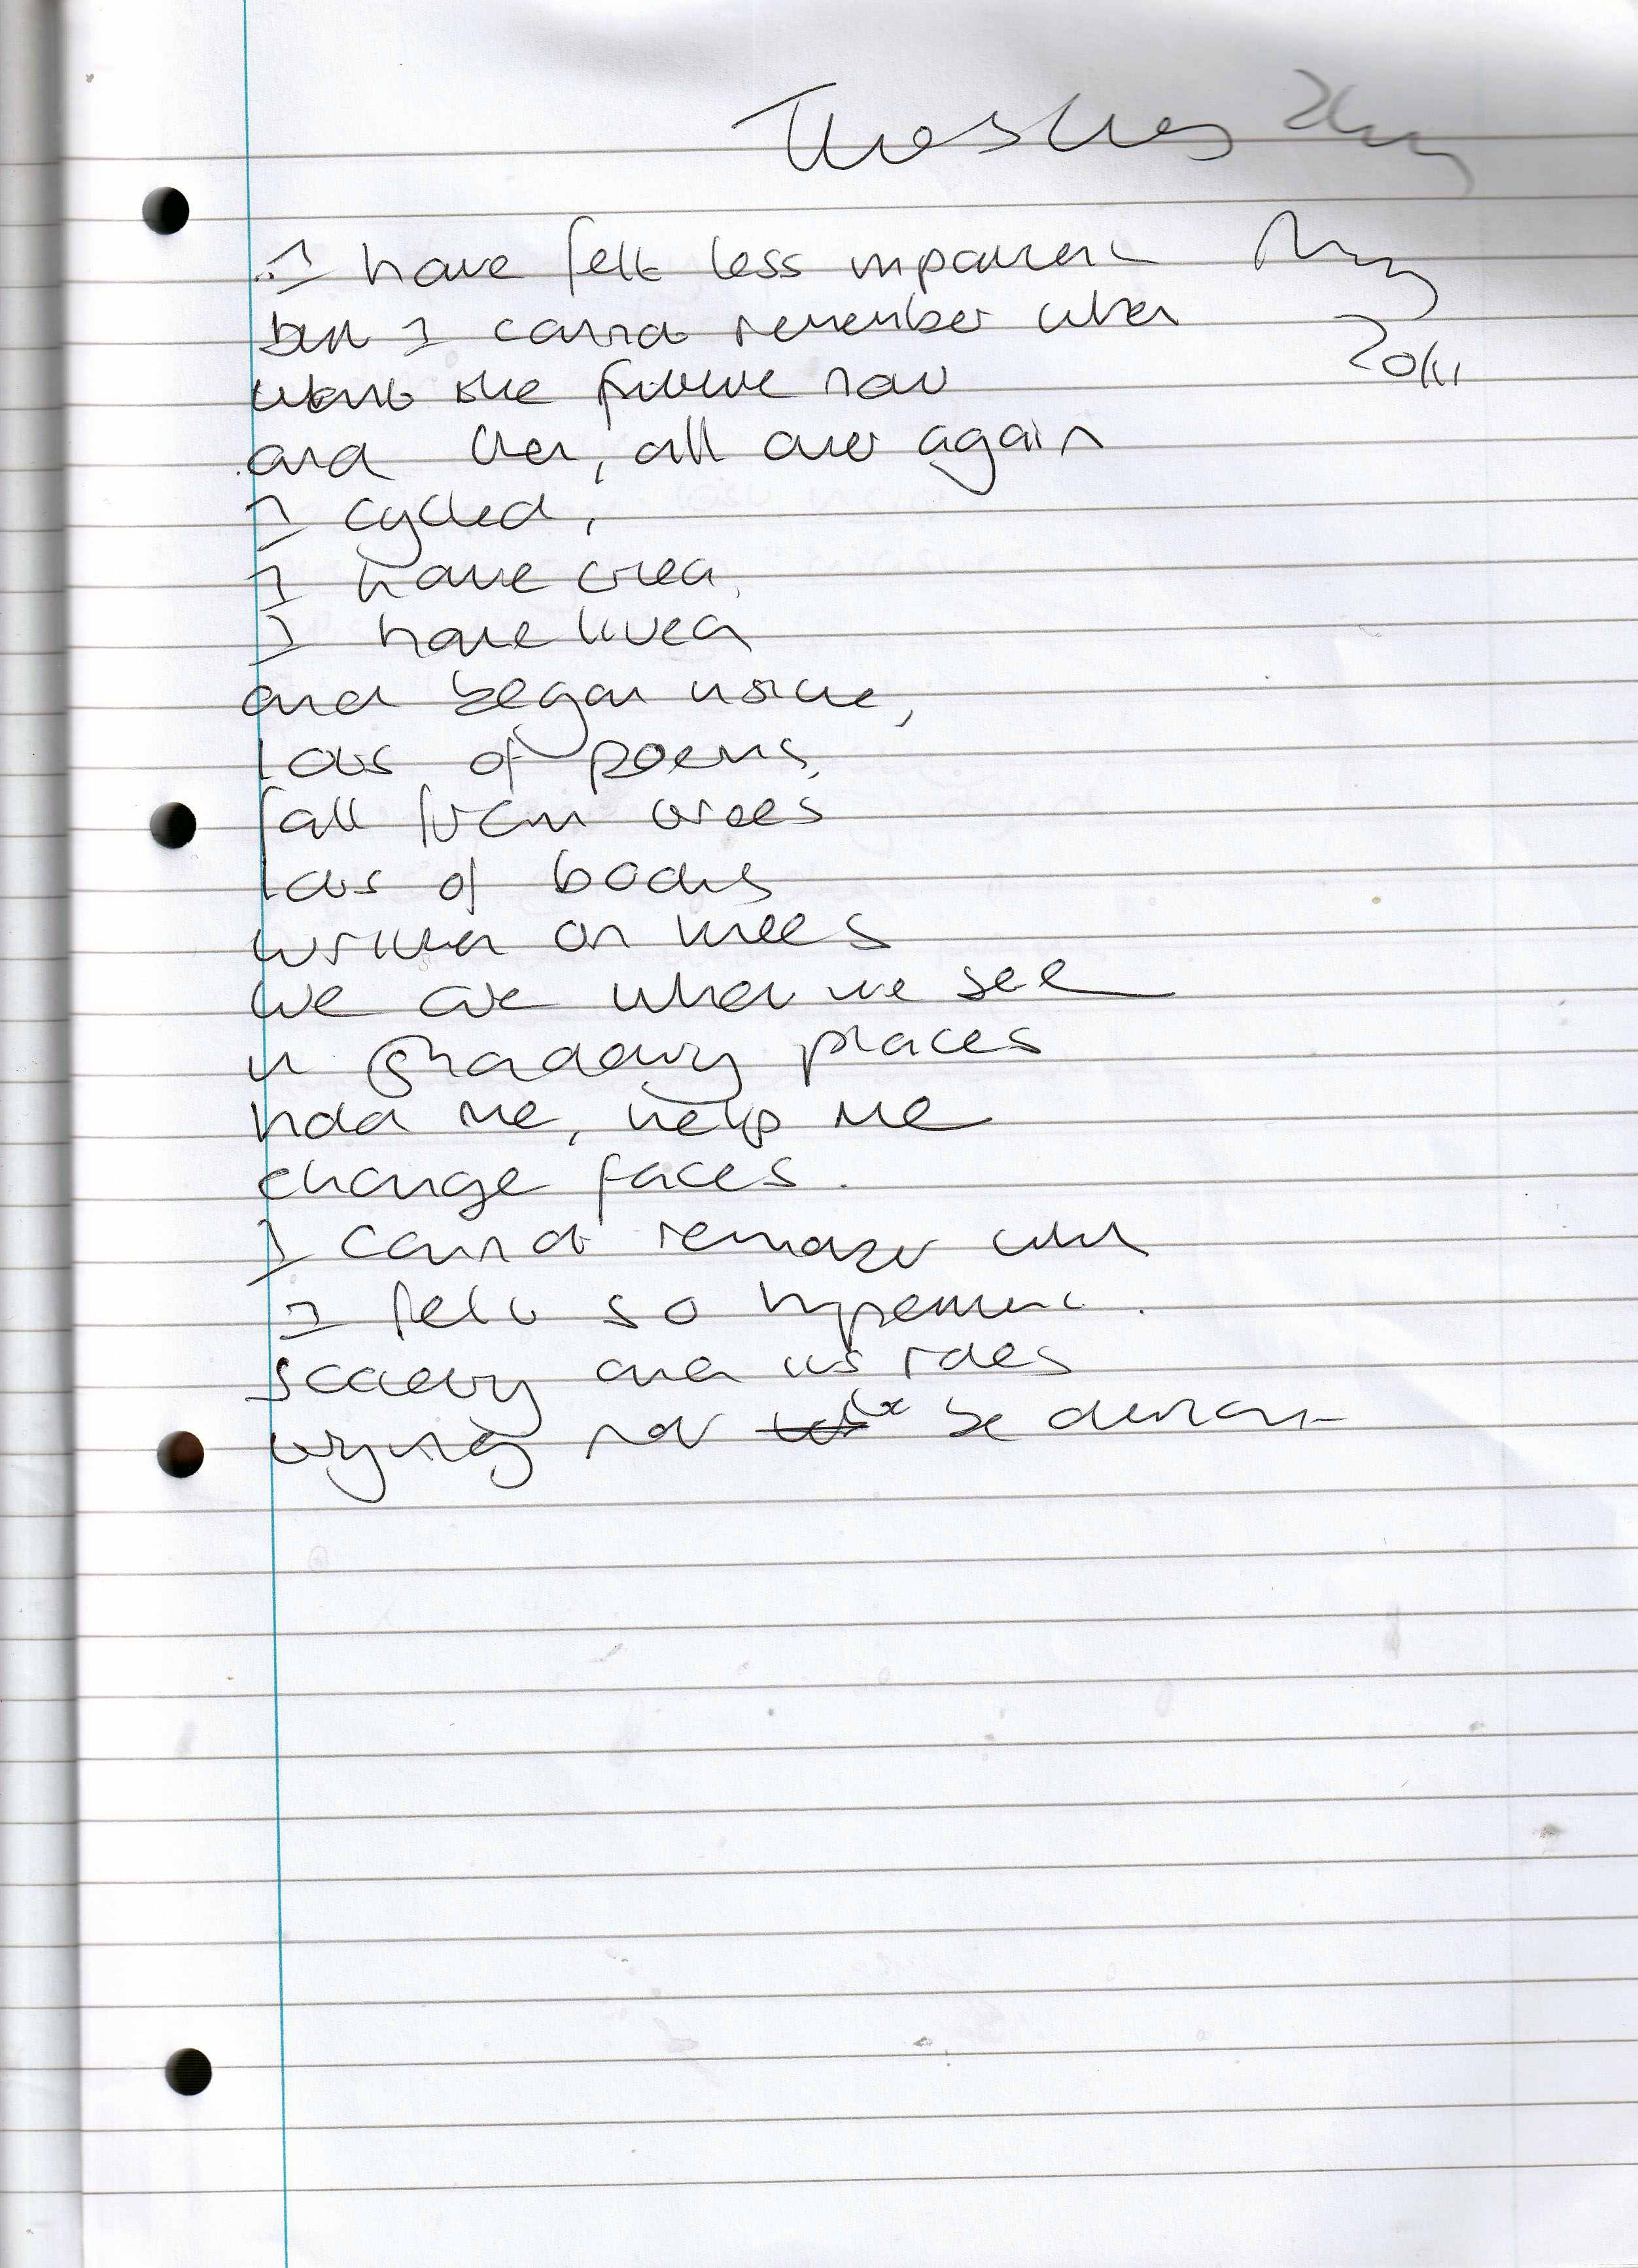 May
2011
I have felt less impatient
but I cannot remember when
want the future now
and then, all over again
I cycled,
I have cried,
I have lived
and began writing,
lots of poems,
fall from trees
lots of bodies
written on knees
we are what we see
in shadowy places
hold me, help me
change faces.
I cannot remember when
I felt so impatient.
society and its roles
trying not to be